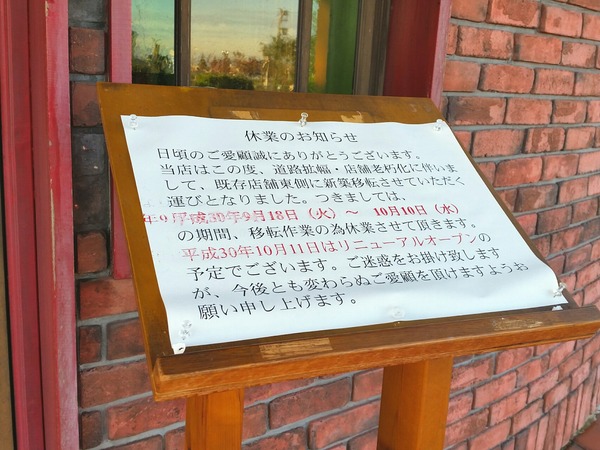 休業のお知らせ
日頃のご愛顧誠にありがとうございます。
当店はこの度、道路拡幅・店舗老朽化に伴いま
して、既存店舗東側に新築移転させていただく
運びとなりました。つきましては、
平成30年9月18日（火）～ 10月10日（水）
の期間、移転作業の為休業させて頂きます。
平成30年10月11日はリニューアルオープンの
予定でございます。ご迷惑をお掛け致します
が、今後とも変わらぬご愛顧を頂けますようお
願い申し上げます。